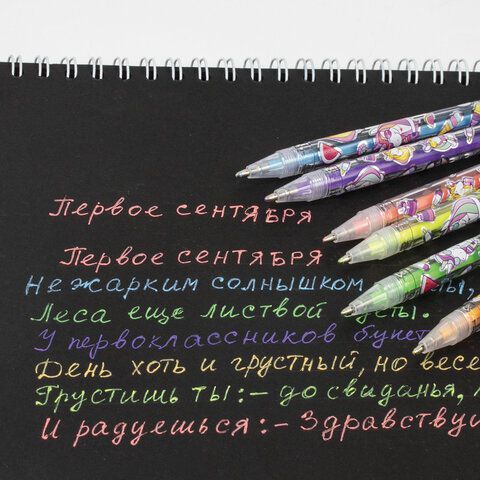 Первое сентября
Первое сентября
Нежарким солнышком ты,
Леса еще листвой ты.
У первоклассников букет
День хоть и грустный, но весе
Грустишь ты:- до свиданья, л
И радуешься:- Здравствуй